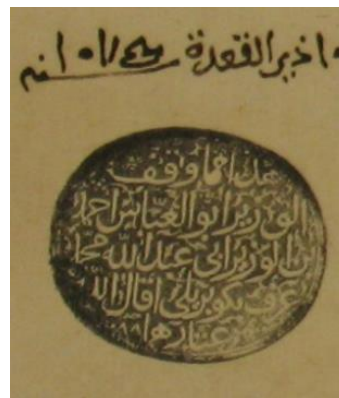 القعدة
هذا مما وقف
الوزير ابو العباس احمد
بن الوزير ابي عبد الله محمد
عرف بكوبريلي اقال الله
عثارهما